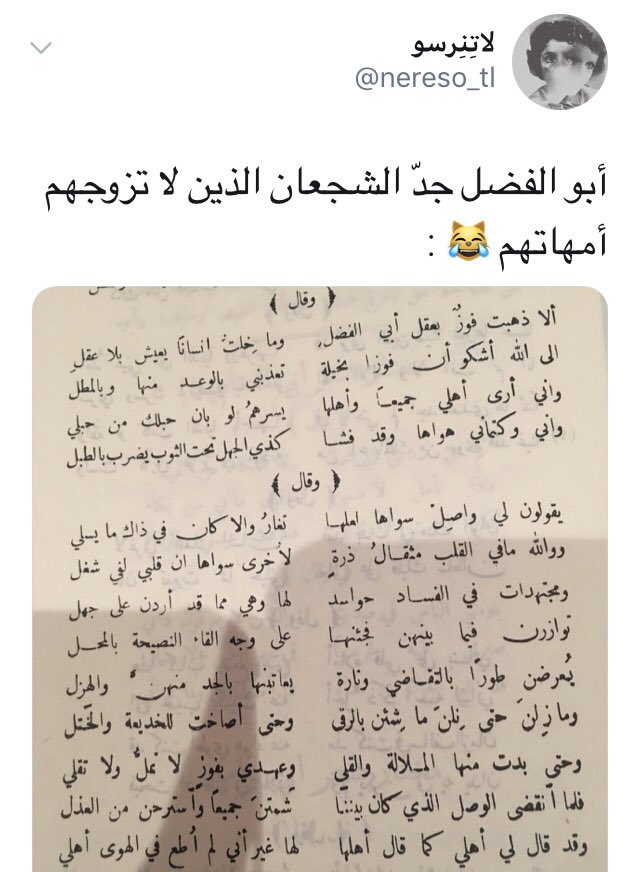 لاتِنِرسو
@nereso_tl
أبو الفضل جدّ الشجعان الذين لا تزوجهم
أمهاتهم 😹 :
﴿ وقال ﴾
ألا ذهبت فوزٌ بعقل أبي الفضل، وما خِلتُ انسانًا يعيش بلا عقلِ
الى الله أشكو أن فوزا بخيلة تعذبني بالوعد منها وبالمطل
واني أرى أهلي جميعاً وأهلها يسرهمُ لو بان حبلك من حبلي
واني وكتماني هواها وقد فشا كذي الجهل تحت الثوب يضرب بالطبل
﴿ وقال ﴾
يقولون لي واصِلْ سواها لعلها تغارُ والا كان في ذاك ما يسلي
ووالله مافي القلب مثقالُ ذرةٍ لأخرى سواها ان قلبي لفي شغل
ومجتهدات في الفساد حواسد لها وهي مما قد أردن على جهل
توازرن فيما بينهن فجئنها على وجه القاء النصيحة بالمحل
يُعرضن طوراً بالتقاضي وتارة يعاتبنها بالجد منهن والهزل
وما زِلنَ حتى نِلنَ ما شِئن بالرقى وحتى أصاخت للخديعة والختل
وحتى بدت منها الملالة والقلي وعهدي بفوز لا تملُّ ولا تقلي
فلما انقضى الوصل الذي كان بيننا شمتنَ جميعاً واسترحن من العذل
وقد قال لي أهلي كما قال أهلها لها غير أني لم أطع في الهوى أهلي